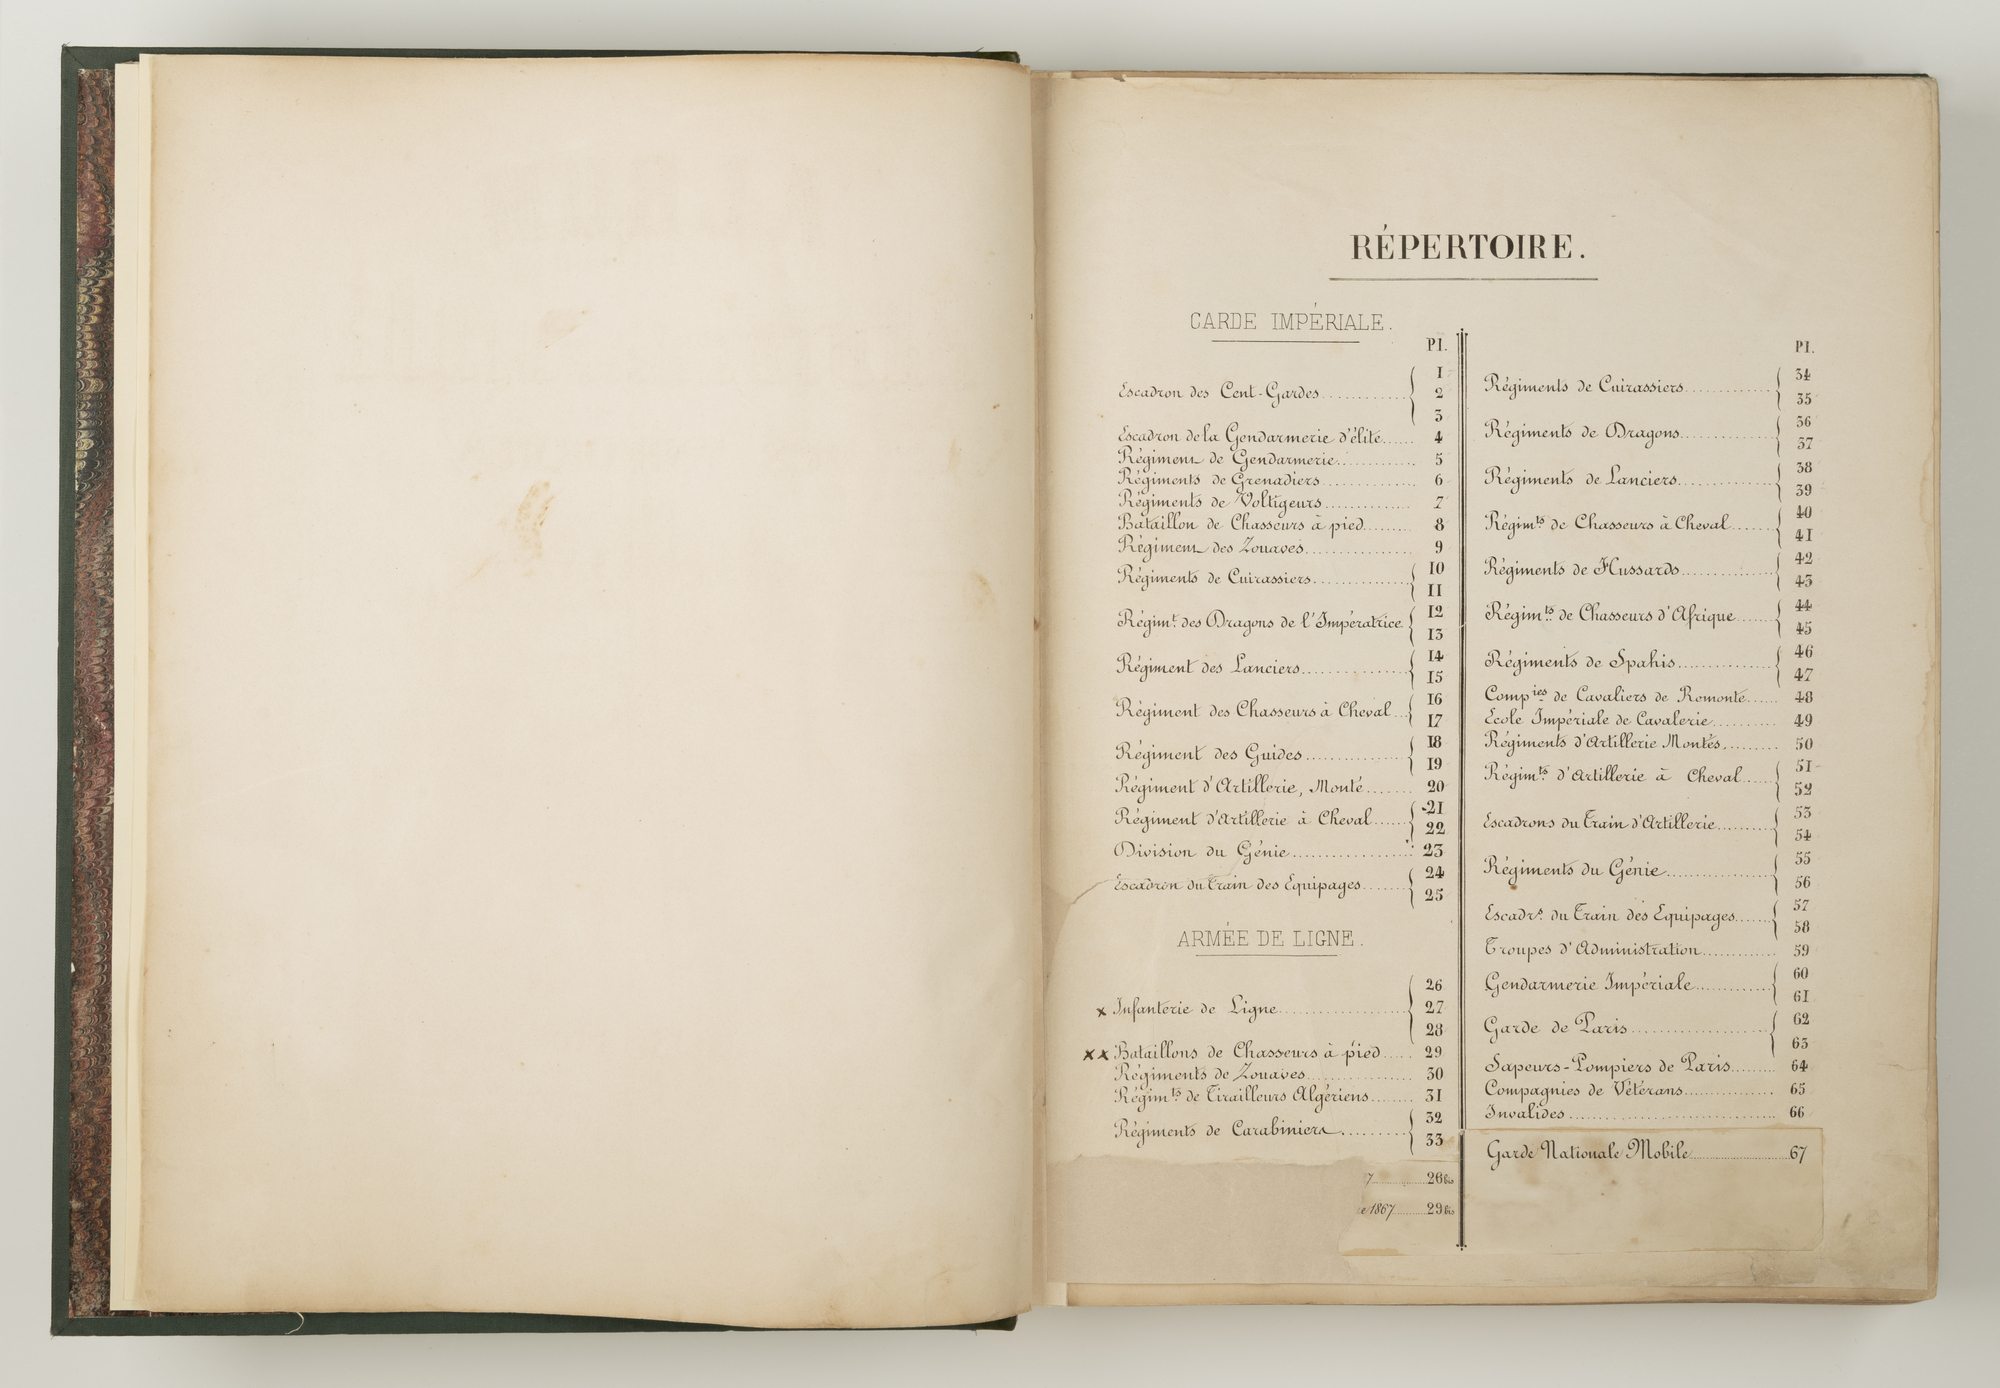 RÉPERTOIRE.
GARDE IMPÉRIALE.
Pl.
Escadron des Cent-Gardes 1 2 3
Escadron de la Gendarmerie d'élite 4
Régiment de Gendarmerie 5
Régiments de Grenadiers 6
Régiments de Voltigeurs 7
Bataillon de Chasseurs à pied 8
Régiment des Zouaves 9
Régiments de Cuirassiers 10 11
Régimt. des Dragons de l'Impératrice 12 13
Régiment des Lanciers 14 15
Régiment des Chasseurs à Cheval 16 17
Régiment des Guides 18 19
Régiment d'Artillerie, Monté 20
Régiment d'Artillerie à Cheval 21 22
Division du Génie 23
Escadron du Train des Equipages 24 25
ARMÉE DE LIGNE.
x Infanterie de Ligne 26 27 28
xx Bataillons de Chasseurs à pied 29
Régiments de Zouaves 30
Régimts. de Tirailleurs Algériens 31
Régiments de Carabiniers 32 33
7 26 bis
e 1867 29 bis
Pl.
Régiments de Cuirassiers 34 35
Régiments de Dragons 36 37
Régiments de Lanciers 38 39
Régimts. de Chasseurs à Cheval 40 41
Régiments de Hussards 42 43
Régimts. de Chasseurs d'Afrique 44 45
Régiments de Spahis 46 47
Compies. de Cavaliers de Remonte 48
Ecole Impériale de Cavalerie 49
Régiments d'Artillerie Montés 50
Régimts. d'Artillerie à Cheval 51 52
Escadrons du Train d'Artillerie 53 54
Régiments du Génie 55 56
Escadrs. du Train des Equipages 57 58
Troupes d'Administration 59
Gendarmerie Impériale 60 61
Garde de Paris 62 63
Sapeurs-Pompiers de Paris 64
Compagnies de Vétérans 65
Invalides 66
Garde Nationale Mobile 67